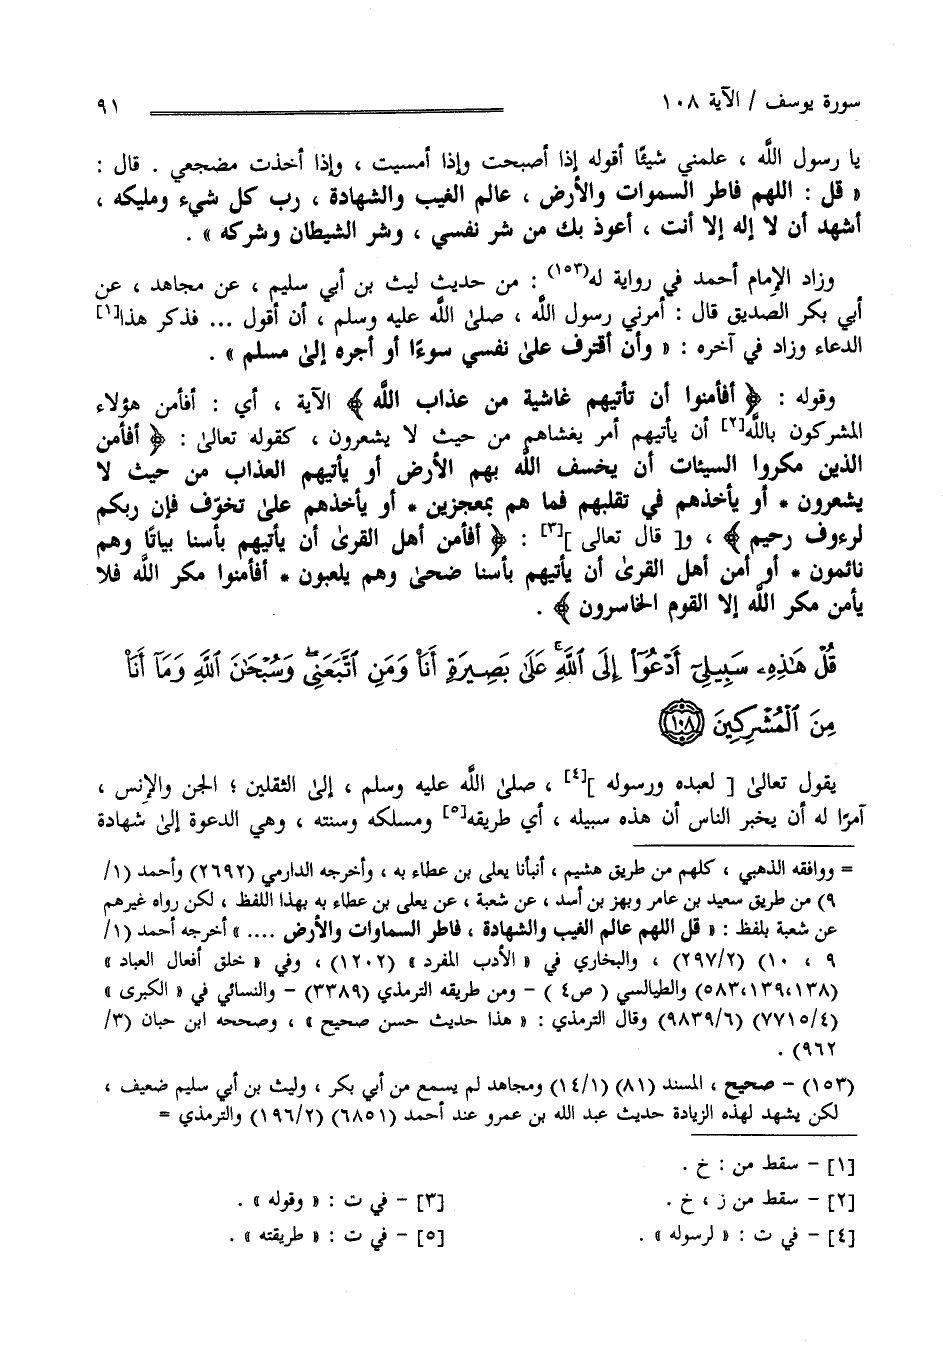 سورة يوسف / الآية ١٠٨
٩١
يا رسول اللَّه ، علمني شيئًا أقوله إذا أصبحت وإذا أمسيت ، وإذا أخذت مضجعي . قال :
« قل : اللهم فاطر السموات والأرض ، عالم الغيب والشهادة ، رب كل شيء ومليكه ،
أشهد أن لا إله إلا أنت ، أعوذ بك من شر نفسي ، وشر الشيطان وشركه » .
وزاد الإمام أحمد في رواية له(١٥٣) : من حديث ليث بن أبي سليم ، عن مجاهد ، عن
أبي بكر الصديق قال : أمرني رسول اللَّه ، صلىٰ اللَّه عليه وسلم ، أن أقول ... فذكر هذا[١]
الدعاء وزاد في آخره : « وأن أقترف علىٰ نفسي سوءًا أو أجره إلىٰ مسلم » .
وقوله : ﴿ أفأمنوا أن تأتيهم غاشية من عذاب اللَّه ﴾ الآية ، أي : أفأمن هؤلاء
المشركون باللَّه[٢] أن يأتيهم أمر يغشاهم من حيث لا يشعرون ، كقوله تعالىٰ : ﴿ أفأمن
الذين مكروا السيئات أن يخسف اللَّه بهم الأرض أو يأتيهم العذاب من حيث لا
يشعرون * أو يأخذهم في تقلبهم فما هم بمعجزين * أو يأخذهم علىٰ تخوّف فإن ربكم
لرءوف رحيم ﴾ ، و[ قال تعالى ][٣] : ﴿ أفأمن أهل القرىٰ أن يأتيهم بأسنا بياتًا وهم
نائمون * أو أمن أهل القرىٰ أن يأتيهم بأسنا ضحىٰ وهم يلعبون * أفأمنوا مكر اللَّه فلا
يأمن مكر اللَّه إلا القوم الخاسرون ﴾ .
قُلْ هَٰذِهِۦ سَبِيلِىٓ أَدْعُوٓا۟ إِلَى ٱللَّهِ ۚ عَلَىٰ بَصِيرَةٍ أَنَا۠ وَمَنِ ٱتَّبَعَنِى ۖ وَسُبْحَٰنَ ٱللَّهِ وَمَآ أَنَا۠
مِنَ ٱلْمُشْرِكِينَ ١٠٨
يقول تعالىٰ [ لعبده ورسوله ][٤] ، صلىٰ اللَّه عليه وسلم ، إلىٰ الثقلين ؛ الجن والإنس ،
آمرًا له أن يخبر الناس أن هذه سبيله ، أي طريقه[٥] ومسلكه وسنته ، وهي الدعوة إلىٰ شهادة
= ووافقه الذهبي ، كلهم من طريق هشيم ، أنبأنا يعلى بن عطاء به ، وأخرجه الدارمي (٢٦٩٢) وأحمد (١/
٩) من طريق سعيد بن عامر وبهز بن أسد ، عن شعبة ، عن يعلى بن عطاء به بهذا اللفظ ، لكن رواه غيرهم
عن شعبة بلفظ : « قل اللهم عالم الغيب والشهادة ، فاطر السماوات والأرض .... » أخرجه أحمد (١/
٩ ، ١٠) (٢٩٧/٢) ، والبخاري في « الأدب المفرد » (١٢٠٢) ، وفي « خلق أفعال العباد »
(١٣٨،١٣٩،٥٨٣) والطيالسي ( ص٤ ) – ومن طريقه الترمذي (٣٣٨٩) – والنسائي في « الكبرى »
(٧٧١٥/٤) (٩٨٣٩/٦) وقال الترمذي : « هذا حديث حسن صحيح » ، وصححه ابن حبان (٣/
٩٦٢) .
(١٥٣) – صحيح ، المسند (٨١) (١٤/١) ومجاهد لم يسمع من أبي بكر ، وليث بن أبي سليم ضعيف ،
لكن يشهد لهذه الزيادة حديث عبد الله بن عمرو عند أحمد (٦٨٥١) (١٩٦/٢) والترمذي =
[١] – سقط من : خ .
[٢] – سقط من ز ، خ .
[٣] – في ت : « وقوله » .
[٤] – في ت : « لرسوله » .
[٥] – في ت : « طريقته » .